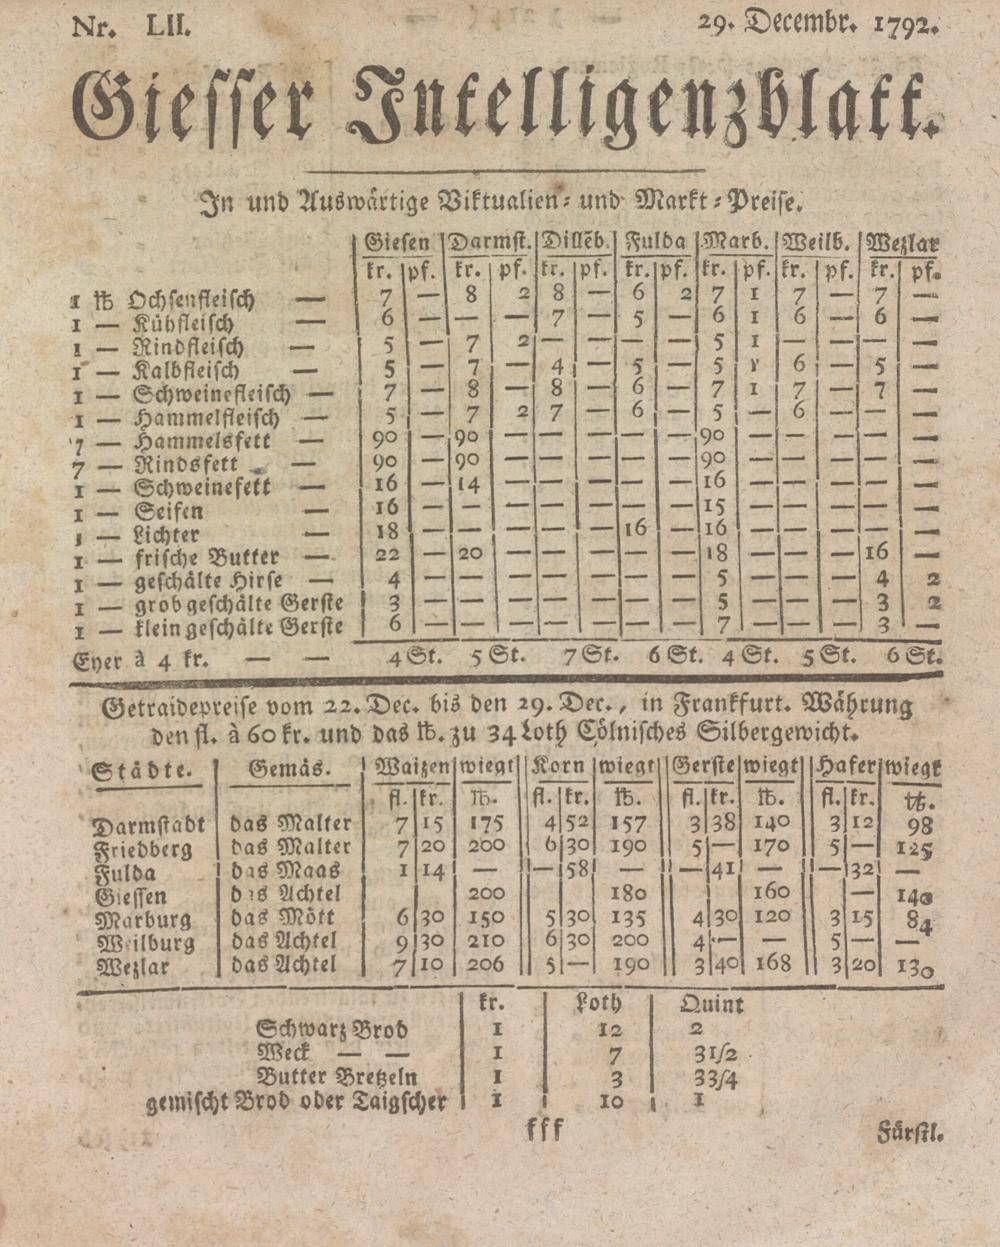 Nr. LII. 29. Decembr. 1792.
Giesser Intelligenzblatt.
In und Auswärtige Viktualien- und Markt-Preise.
Giesen Darmst. Dilleb. Fulda Marb. Weilb. Wezlar
kr. pf. kr. pf. kr. pf. kr. pf. kr. pf. kr. pf. kr. pf.
1 ℔ Ochsenfleisch — 7 — 8 2 8 — 6 2 7 1 7 — 7 —
1 — Kühfleisch — 6 — — — 7 — 5 — 6 1 6 — 6 —
1 — Rindfleisch — 5 — 7 2 — — — — 5 1 — — — —
1 — Kalbfleisch — 5 — 7 — 4 — 5 — 5 1 6 — 5 —
1 — Schweinefleisch — 7 — 8 — 8 — 6 — 7 1 7 — 7 —
1 — Hammelfleisch — 5 — 7 2 7 — 6 — 5 — 6 — — —
7 — Hammelsfett — 90 — 90 — — — — — 90 — — — — —
7 — Rindsfett — 90 — 90 — — — — — 90 — — — — —
1 — Schweinefett — 16 — 14 — — — — — 16 — — — — —
1 — Seifen — 16 — — — — — — — 15 — — — — —
1 — Lichter — 18 — — — — — 16 — 16 — — — — —
1 — frische Butter — 22 — 20 — — — — — 18 — — — 16 —
1 — geschälte Hirse — 4 — — — — — — — 5 — — — 4 2
1 — grob geschälte Gerste 3 — — — — — — — 5 — — — 3 2
1 — klein geschälte Gerste 6 — — — — — — — 7 — — — 3 —
Eyer à 4 kr. — — 4 St. 5 St. 7 St. 6 St. 4 St. 5 St. 6 St.
Getraidepreise vom 22. Dec. bis den 29. Dec., in Frankfurt. Währung
den fl. à 60 kr. und das ℔. zu 34 Loth Cölnisches Silbergewicht.
Städte. Gemäs. Waizen wiegt Korn wiegt Gerste wiegt Hafer wiegt
fl. kr. ℔. fl. kr. ℔. fl. kr. ℔. fl. kr. ℔.
Darmstadt das Malter 7 15 175 4 52 157 3 38 140 3 12 98
Friedberg das Malter 7 20 200 6 30 190 5 — 170 5 — 125
Fulda das Maas 1 14 — — 58 — — 41 — — 32 —
Giessen das Achtel 200 180 160 — 140
Marburg das Mött 6 30 150 5 30 135 4 30 120 3 15 84
Weilburg das Achtel 9 30 210 6 30 200 4 — — 5 — —
Wezlar das Achtel 7 10 206 5 — 190 3 40 168 3 20 130
kr. Loth Quint
Schwarz Brod 1 12 2
Weck — — 1 7 3 1/2
Butter Bretzeln 1 3 3 3/4
gemischt Brod oder Taigscher 1 10 1
fff Fürstl.